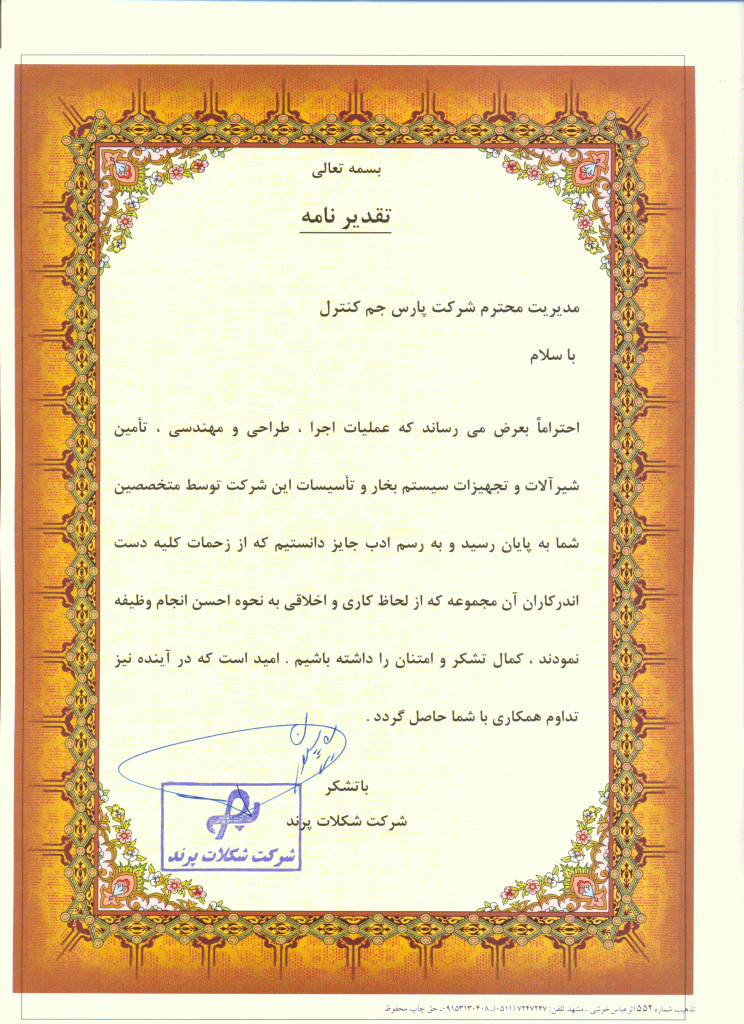 بسمه تعالی
تقدیر نامه
مدیریت محترم شرکت پارس جم کنترل
با سلام
احتراماً بعرض می رساند که عملیات اجرا ، طراحی و مهندسی ، تأمین
شیرآلات و تجهیزات سیستم بخار و تأسیسات این شرکت توسط متخصصین
شما به پایان رسید و به رسم ادب جایز دانستیم که از زحمات کلیه دست
اندرکاران آن مجموعه که از لحاظ کاری و اخلاقی به نحوه احسن انجام وظیفه
نمودند ، کمال تشکر و امتنان را داشته باشیم . امید است که در آینده نیز
تداوم همکاری با شما حاصل گردد .
باتشکر
شرکت شکلات پرند
شرکت شکلات پرند
تذهیب شماره ۵۵۲ اثرعباس خوشی ـ مشهد تلفن: ۷۲۴۷۲۴۷ (۰۵۱۱)ـ ۰۹۱۵۳۱۳۰۴۰۸ـ حق چاپ محفوظ